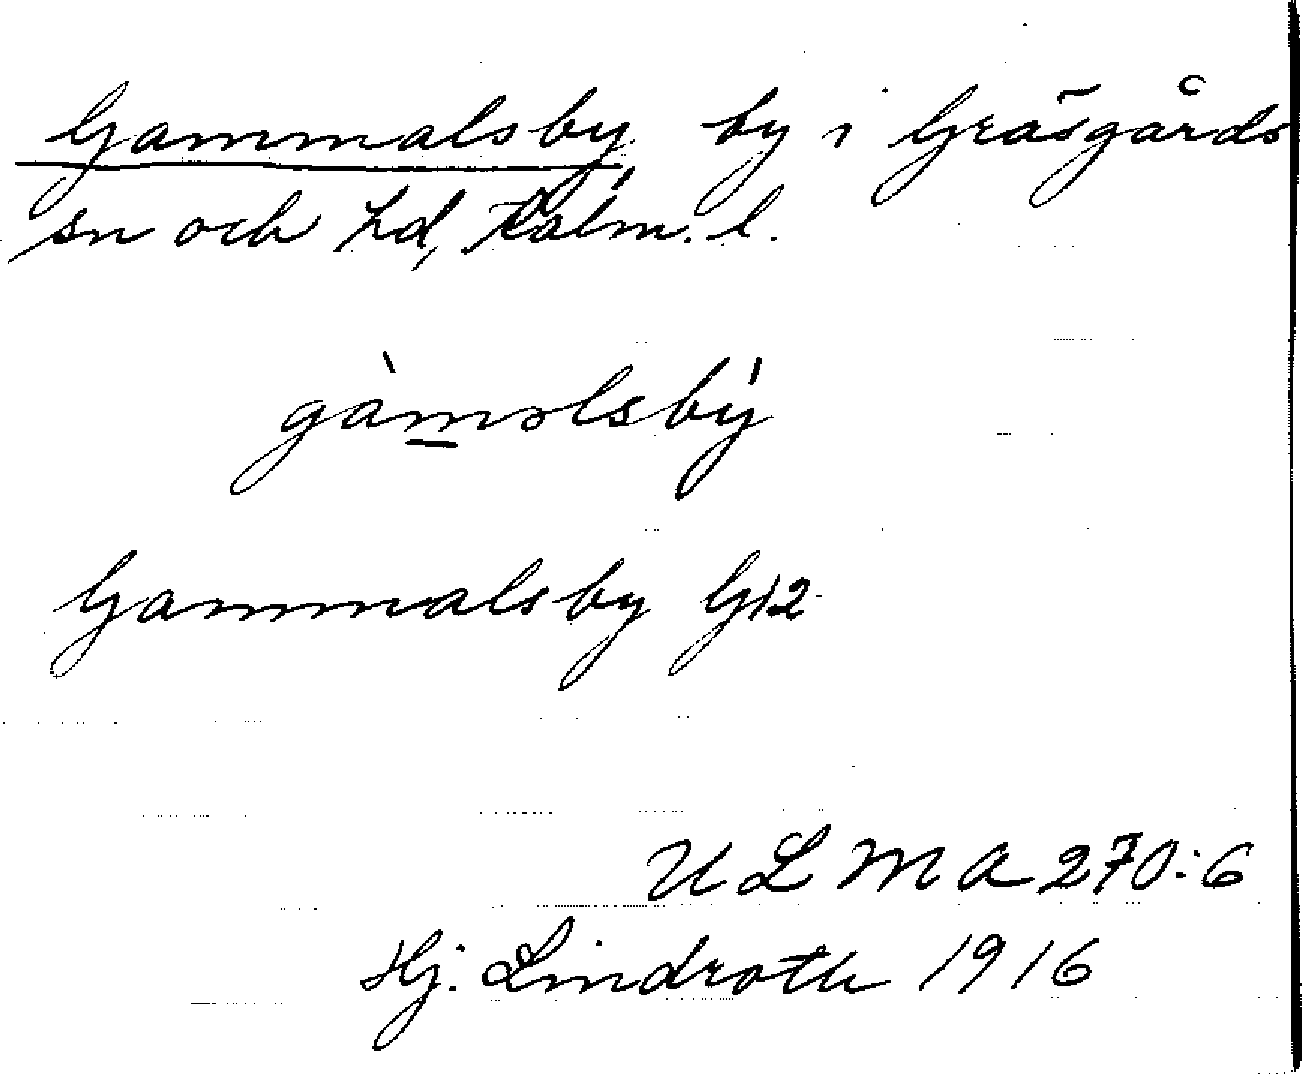 Gammalsby by i Gräsgårds
sn och hd, Kalm. l.
gàm̲əlsbý
Gammalsby G12
ULMA 270:6
Hj. Lindroth 1916